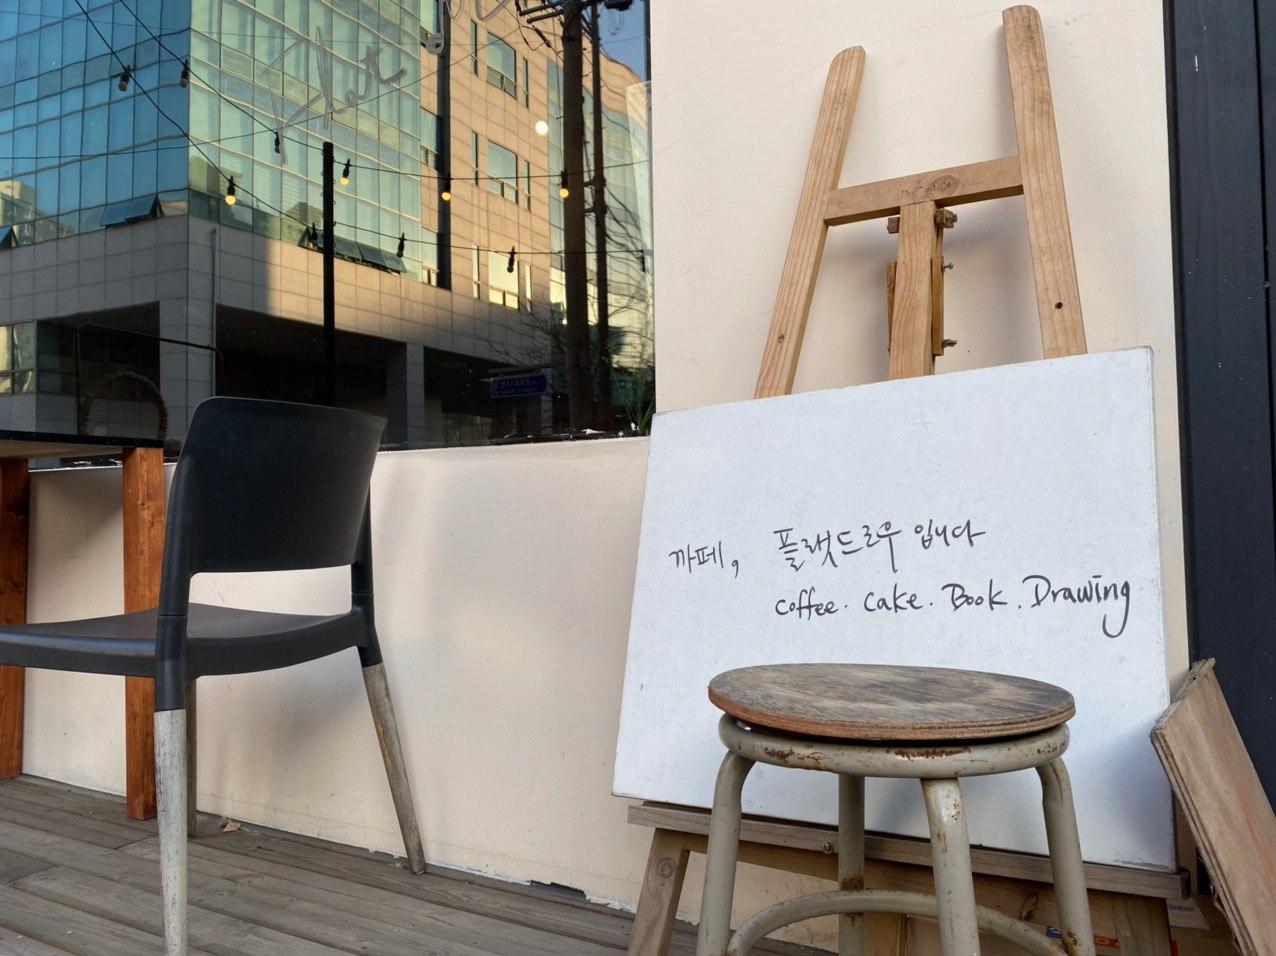 까페, 플랫드로우 입니다
Coffee. Cake. Book. Drawing